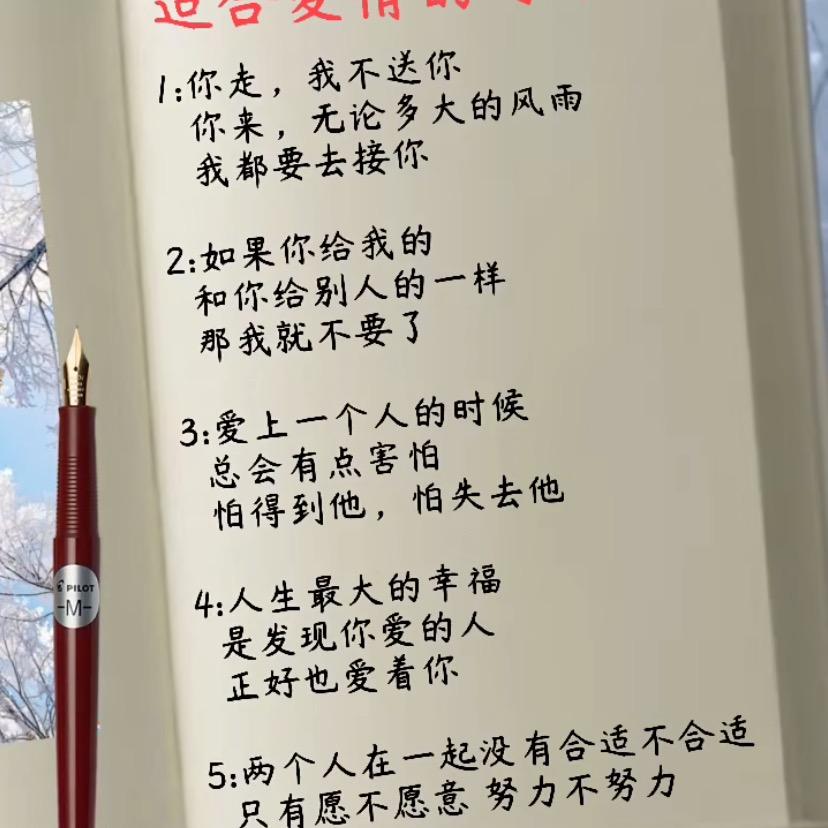 适合爱情的
1:你走，我不送你
你来，无论多大的风雨
我都要去接你
2:如果你给我的
和你给别人的一样
那我就不要了
3:爱上一个人的时候
总会有点害怕
怕得到他，怕失去他
4:人生最大的幸福
是发现你爱的人
正好也爱着你
5:两个人在一起没有合适不合适
只有愿不愿意 努力不努力
PILOT
-M-